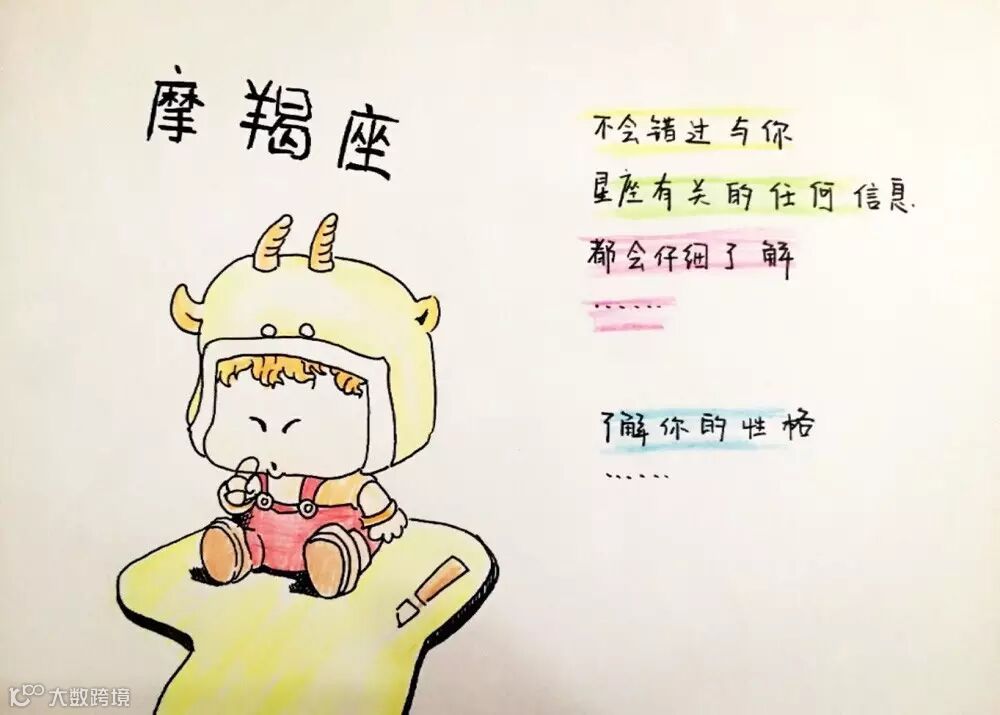 摩羯座
不会错过与你
星座有关的任何信息
都会仔细了解
......
了解你的性格
......
大数跨境